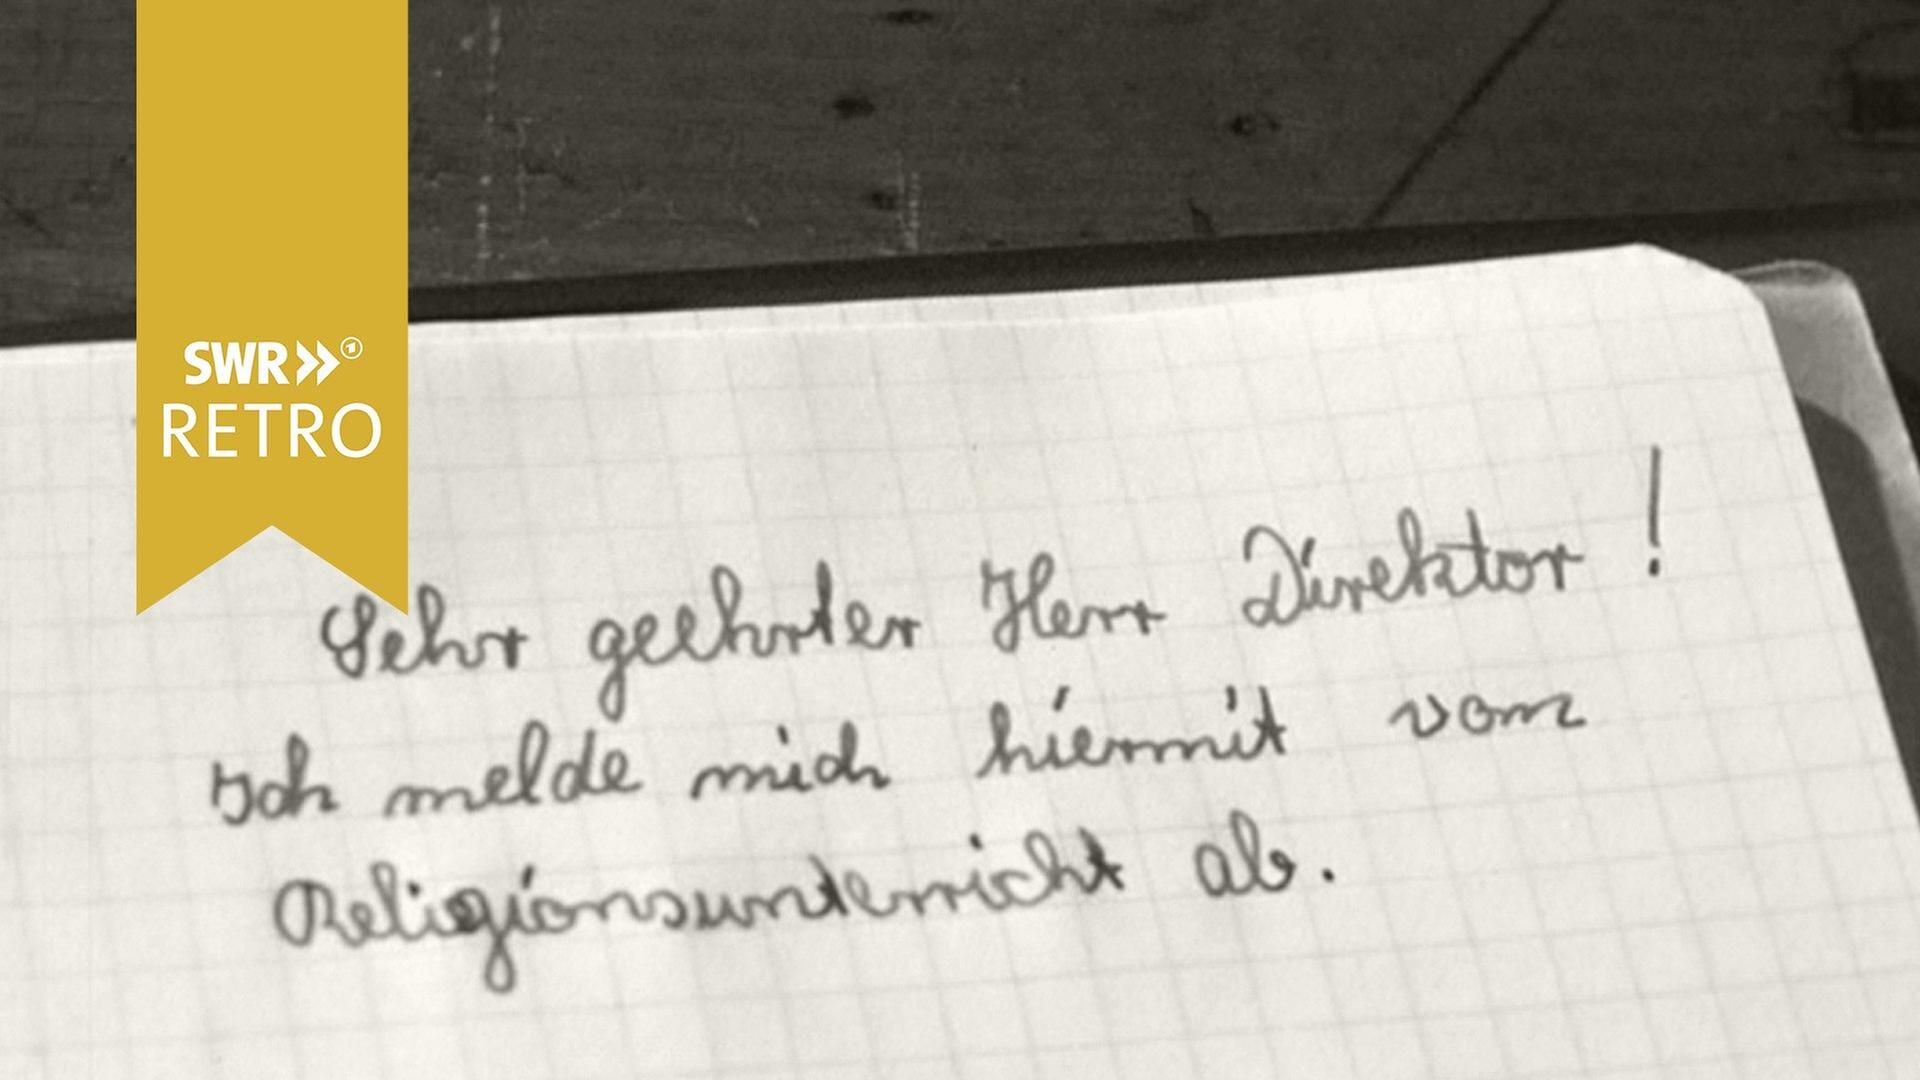 SWR
RETRO
Sehr geehrter Herr Direktor!
Ich melde mich hiermit vom
Religionsunterricht ab.